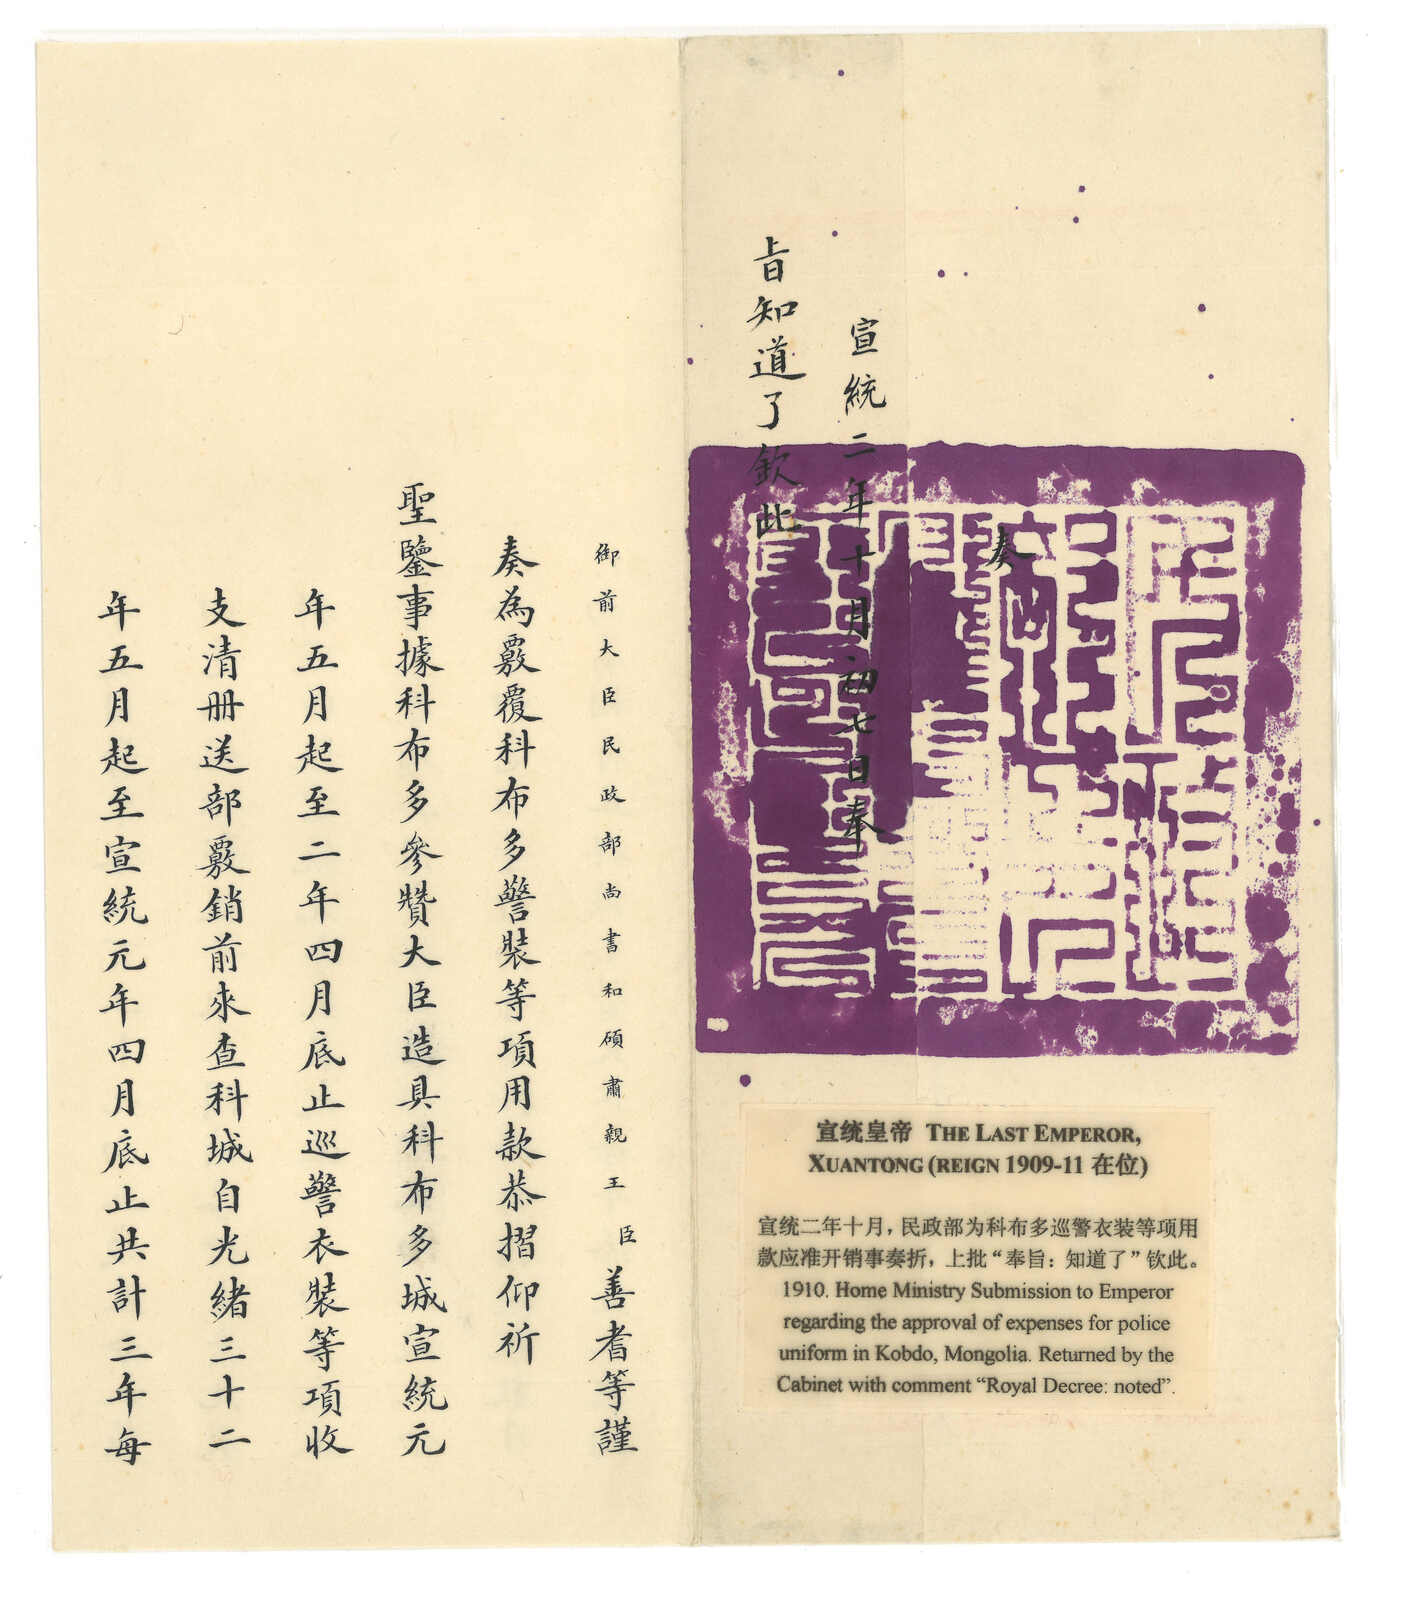 奏
宣統二年十月初七日奉
旨知道了欽此
御前大臣民政部尚書和碩肅親王臣善耆等謹
奏為覈覆科布多警裝等項用款恭摺仰祈
聖鑒事據科布多參贊大臣造具科布多城宣統元
年五月起至二年四月底止巡警衣裝等項收
支清册送部覈銷前來查科城自光緒三十二
年五月起至宣統元年四月底止共計三年每
宣统皇帝 THE LAST EMPEROR,
XUANTONG (REIGN 1909-11 在位)
宣统二年十月，民政部为科布多巡警衣装等项用
款应准开销事奏折，上批“奉旨：知道了”钦此。
1910. Home Ministry Submission to Emperor
regarding the approval of expenses for police
uniform in Kobdo, Mongolia. Returned by the
Cabinet with comment “Royal Decree: noted”.